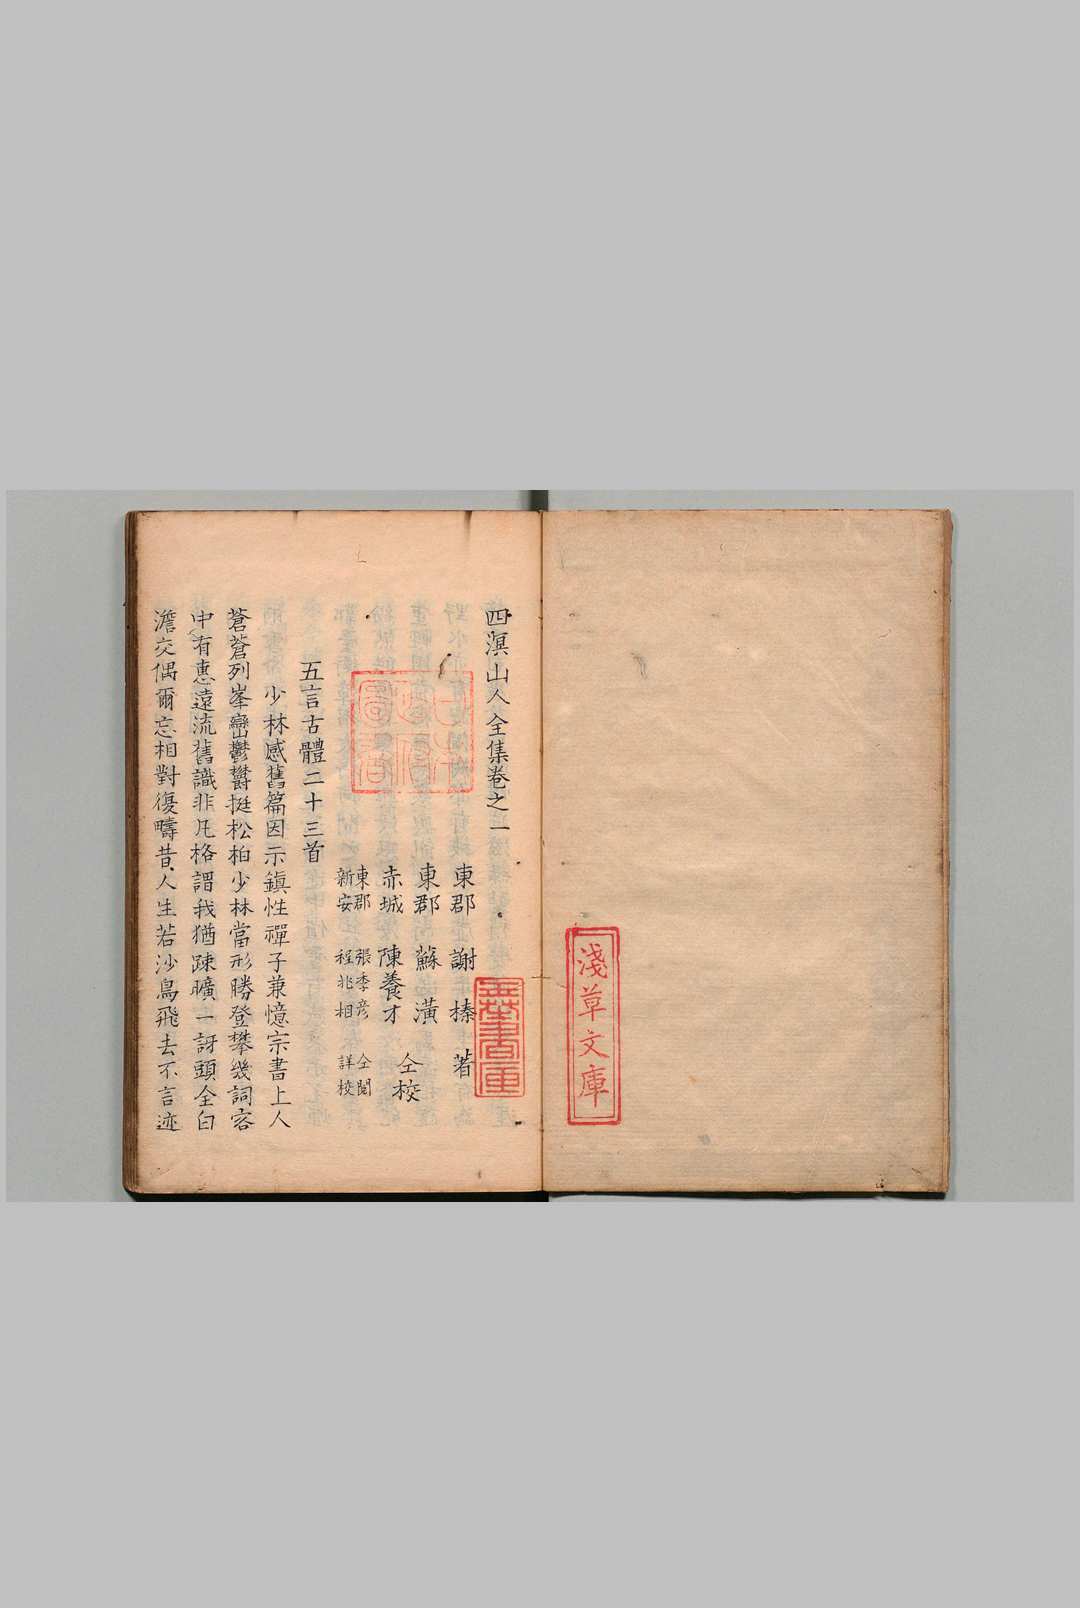 淺草文庫
四溟山人全集卷之一
東郡 謝榛 著
東郡 蘇潢
赤城 陳養才 仝校
東郡 張季彦 仝閱
新安 程兆相 詳校
五言古體二十三首
少林感舊篇因示鎮性禪子兼憶宗書上人
蒼蒼列峯巒鬱鬱挺松柏少林當形勝登攀幾詞客
中有惠遠流舊識非凡格謂我猶疎曠一訝頭全白
澹交偶爾忘相對復疇昔人生若沙鳥飛去不言迹